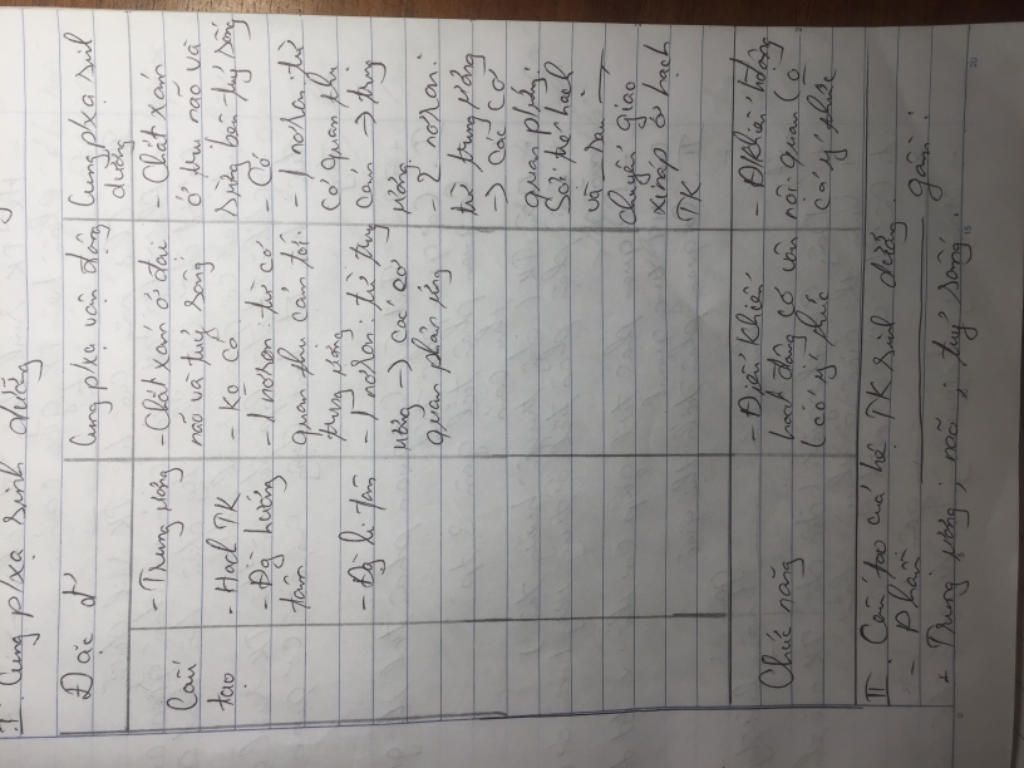 I. Cung p/xạ sinh dưỡng
Đặc đ'
Cung pxạ vận động
Cung pxạ sinh
dưỡng
Cấu
tạo
- Trung ương
- Hạch TK
- Đg hướng
tâm
- Đg li tâm
- Chất xám ở đại
não và tuỷ sống
- Ko có
- 1 nơron: từ cơ
quan thụ cảm tới
trung ương
- 1 nơron: từ trung
ương -> các cơ
quan phản ứng
- Chất xám
ở trụ não và
sừng bên tuỷ sống
- Có
- 1 nơron: từ
cơ quan thụ
cảm -> trung
ương
- 2 nơron:
từ trung ương
-> các cơ
quan phảng
Sợi trc hạch
và sau
chuyển giao
xináp ở hạch
TK
Chức năng
- Điều khiển
hoạt động cơ vân
(có ý thức
- Đkhiển hđộng
nội quan (o
có ý thức
II. Cấu tạo của hệ TK sinh dưỡng
- Phần gồm:
+ Trung ương; não, tuỷ sống.